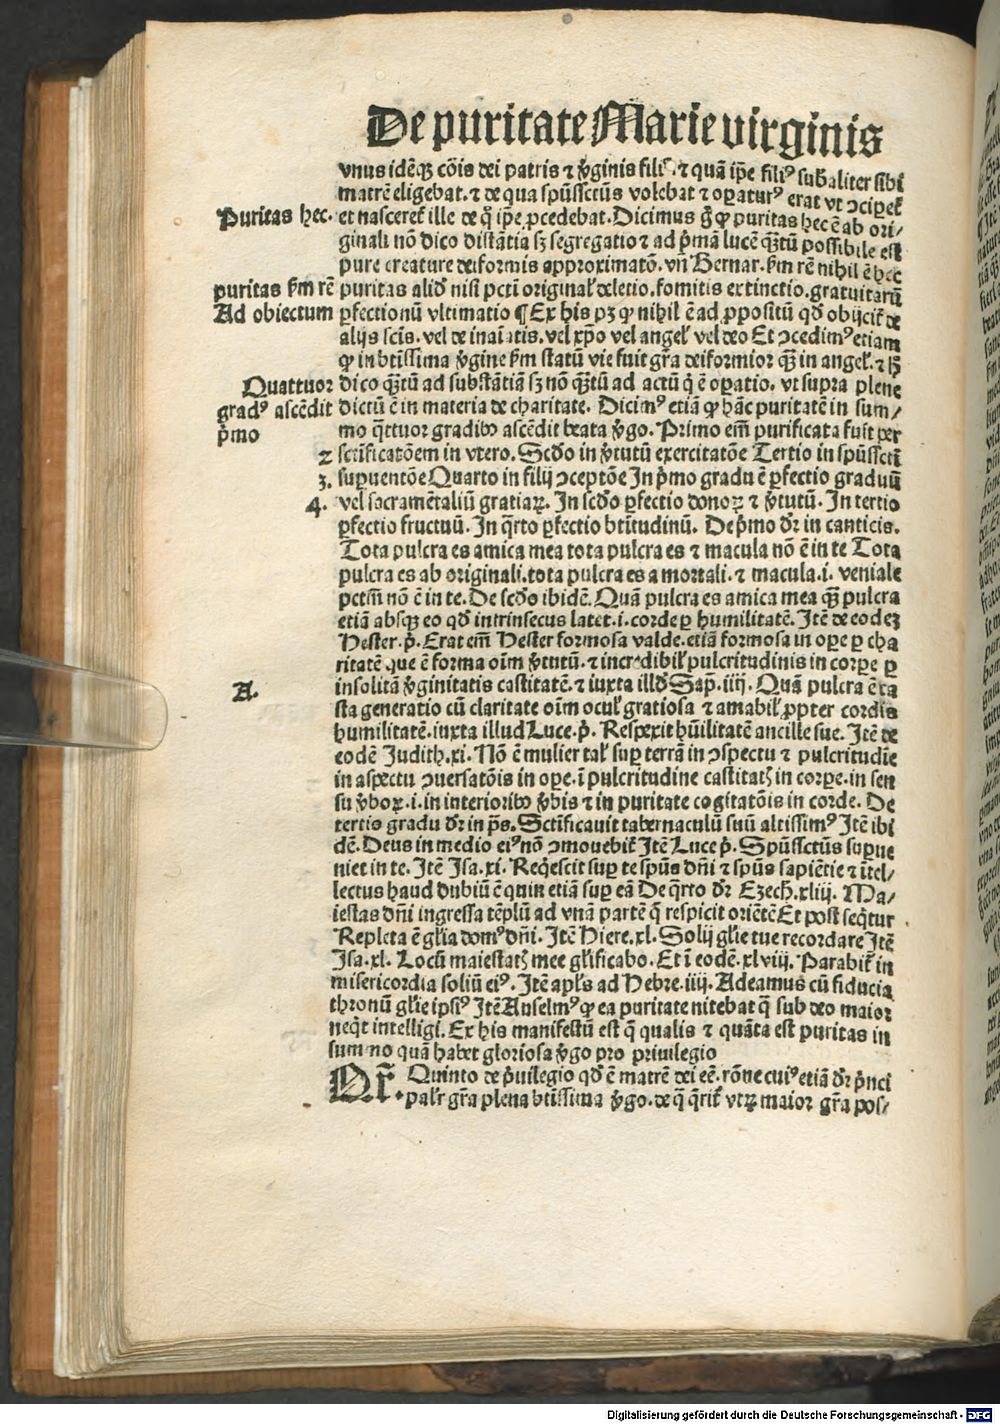 De puritate Marie virginis
vnus idēqȝ cōis dei patris ⁊ v̾ginis filiꝰ ⁊ quā ip̄e filiꝰ sub̄aliter sibi
matrē eligebat. ⁊ de qua spūssctūs volebat ⁊ oꝑaturꝰ erat vt ↄciꝑet̄
Puritas hec.
et nasceret̄ ille de q̊ ip̄e ꝓcedebat. Dicimus g̊ ꝙ puritas hec ē ab ori⸗
ginali nō dico distātia sȝ segregatio ⁊ ad p̄mā lucē qȝtū possibile est
pure creature deiformis approximatō. vn̄ Bernar. ẜm rē nihil ē hec
puritas ẜm rē
puritas aliđ nisi pctī original̓ deletio. fomitis extinctio. gratuitarū
Ad obiectum
ꝑfectionū vltimatio ¶ Ex his pȝ ꝙ nihil ē ad ꝓpositū qđ obijcit̄ de
alijs scīs. vel de inaīatis. vel xp̄o vel angel̓ vel deo Et ↄcedimꝰ etiam
ꝙ in btīssima v̾gine ẜm statū vie fuit gr̄a deiformior qȝ in angel̓. ⁊ hȝ
Quattuor
dico qȝtū ad substātiā sȝ nō qȝtū ad actū q̇ ē oꝑatio. vt supra plene
gradꝰ ascēdit
dictū ē in materia de charitate. Dicimꝰ etiā ꝙ hāc puritatē in sum⸗
p̄mo
mo q̄ttuor gradibꝰ ascēdit beata v̾go. Primo em̄ purificata fuit per
2
sctificatōem in vtero. Scđo in v̾tutū exercitatōe Tertio in spūssctī
3.
suꝑuentōe Quarto in filij ↄceptōe In p̄mo gradu ē ꝑfectio graduū
4.
vel sacramētaliū gratiaꝝ. In scđo ꝑfectio donoꝝ ⁊ v̾tutū. In tertio
ꝑfectio fructuū. In q̄rto ꝑfectio btītudinū. De p̄mo dr̄ in canticis.
Tota pulcra es amica mea tota pulcra es ⁊ macula nō ē in te Tota
pulcra es ab originali. tota pulcra es a mortali. ⁊ macula .i. veniale
pctm̄ nō ē in te. De scđo ibidē. Quā pulcra es amica mea qȝ pulcra
etiā absqȝ eo qđ intrinsecus latet .i. corde ꝑ humilitatē. Itē de eodeȝ
Hester .p̄. Erat em̄ Hester formosa valde. etiā formosa in oꝑe ꝑ cha
ritatē que ē forma oīm v̾tutū. ⁊ incredibil̓ pulcritudinis in corꝑe ꝑ
A.
insolitā v̾ginitatis castitatē. ⁊ iuxta illđ Sap̄. iiij. Quā pulcra ē ca
sta generatio cū claritate oīm ocul̓ gratiosa ⁊ amabil̓ ꝓpter cordis
humilitatē. iuxta illud Luce .p̄. Respexit hūilitatē ancille sue. Itē de
eodē Judith. xi. Nō ē mulier tal̓ suꝑ terrā in ↄspectu ⁊ pulcritudīe
in aspectu ↄuersatōis in oꝑe. ī pulcritudine castitatꝭ in corꝑe. in sen
su v̾boꝝ .i. in interioribꝰ v̾bis ⁊ in puritate cogitatōis in corde. De
tertio gradu dr̄ in ps̄. Sctificauit tabernaculū suū altissimꝰ Itē ibi
dē. Deus in medio eiꝰ nō ↄmouebit̄ Itē Luce p̄. Spūssctūs suꝑue
niet in te. Itē Isa. xi. Req̇escit suꝑ te spūs dn̄i ⁊ spūs sapiētie ⁊ ītel⸗
lectus haud dubiū ē quin etiā suꝑ eā De q̄rto dr̄ Ezech. xliij. Ma⸗
iestas dn̄i ingressa tēplū ad vnā partē q̄ respicit oriētē Et post seq̇tur
Repleta ē gl̓ia domꝰ dn̄i. Itē Hiere. xl. Solij gl̓ie tue recordare Itē
Isa. xl. Locū maiestatꝭ mee gl̓ificabo. Et ī eodē. xlviij. Parabit̄ in
misericordia soliū eiꝰ. Itē apl̓s ad Hebre. iiij. Adeamus cū fiducia
thronū gl̓ie ipsiꝰ Itē Anselmꝰ ꝙ ea puritate nitebat q̄ sub deo maior
neq̇t intelligi. Ex his manifestū est q̄ qualis ⁊ quāta est puritas in
summo quā habet gloriosa v̾go pro priuilegio
Qr̄. Quinto de p̄uilegio qđ ē matrē dei eē. rōne cuiꝰ etiā dr̄ p̄nci
pal̓r gr̄a plena btīssima v̾go. de q̄ q̄rit̄ vtꝝ maior gr̄a pos⸗
Digitalisierung gefördert durch die Deutsche Forschungsgemeinschaft - DFG